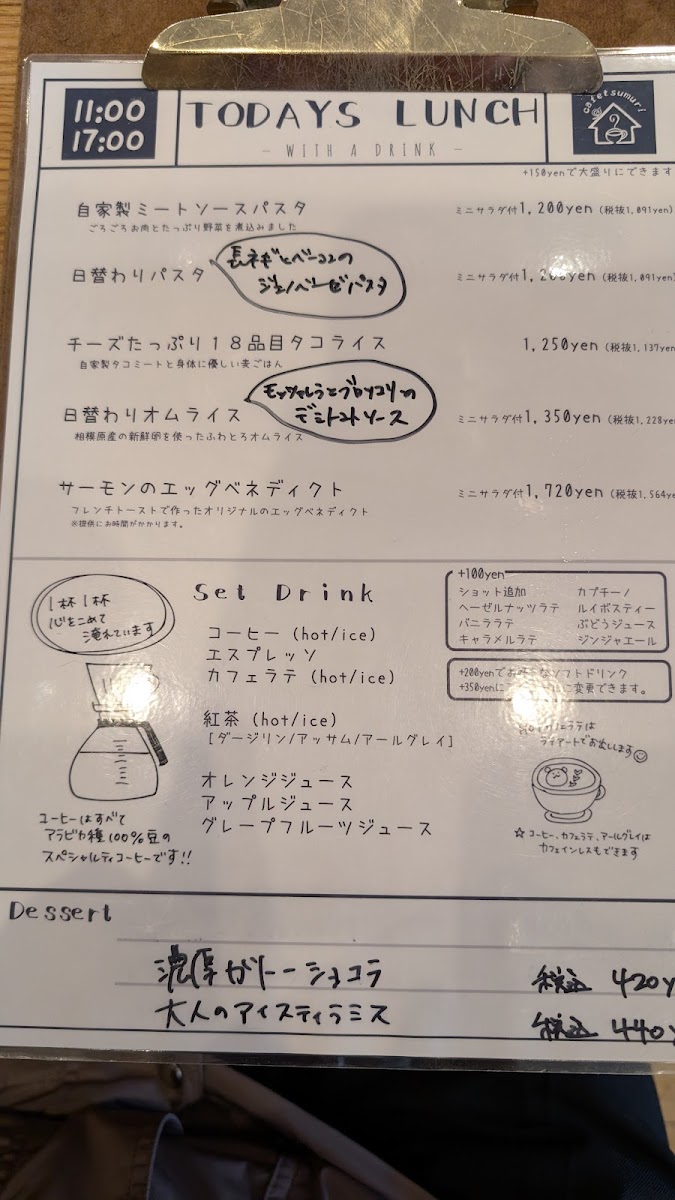 11:00
17:00
TODAYS LUNCH
- WITH A DRINK -
cafetsumuri
+150yenで大盛りにできます
自家製ミートソースパスタ
ミニサラダ付1,200yen (税抜1,091yen)
ごろごろお肉とたっぷり野菜を煮込みました
日替わりパスタ
長ネギとベーコンの
ジェノベーゼパスタ
ミニサラダ付1,200yen (税抜1,091yen)
チーズたっぷり18品目タコライス
1,250yen (税抜1,137yen
自家製タコミートと身体に優しい麦ごはん
日替わりオムライス
モッツァレラとブロッコリーの
デミトマトソース
ミニサラダ付1,350yen (税抜1,228yen
相模原産の新鮮卵を使ったふわとろオムライス
サーモンのエッグベネディクト
ミニサラダ付1,720yen (税抜1,564ye
フレンチトーストで作ったオリジナルのエッグベネディクト
※提供にお時間がかかります。
1杯1杯
心をこめて
淹れています
Set Drink
コーヒー (hot/ice)
エスプレッソ
カフェラテ (hot/ice)
紅茶 (hot/ice)
[ダージリン/アッサム/アールグレイ]
オレンジジュース
アップルジュース
グレープフルーツジュース
+100yen
ショット追加 カプチーノ
ヘーゼルナッツラテ ルイボスティー
バニララテ ぶどうジュース
キャラメルラテ ジンジャエール
+200yenでお好きなソフトドリンク
+350yenに変更できます。
ラテは
ラテアートでお出しします
☆コーヒー、カフェラテ、アールグレイは
カフェインレスもできます
コーヒーはすべて
アラビカ種100%豆の
スペシャルティコーヒーです!!
Dessert
濃厚ガトーショコラ 税込 420y
大人のアイスティラミス 税込 440y